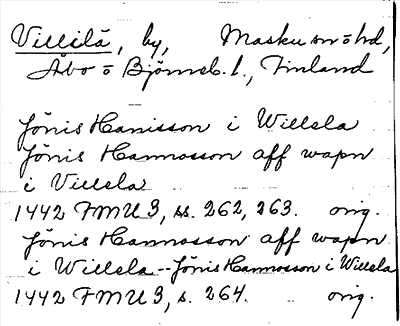 Villilä, by, Masku sn o hd,
Åbo o Björneb. l., Finland
Jönis Hanisson i Willela
Jönis Hannosson aff wapn
i Villela
1442 FMU 3, ss. 262, 263. orig.
Jönis Hannosson aff wapn
i Willela -- Jönis Hannosson i Willela
1442 FMU 3, s. 264. orig.